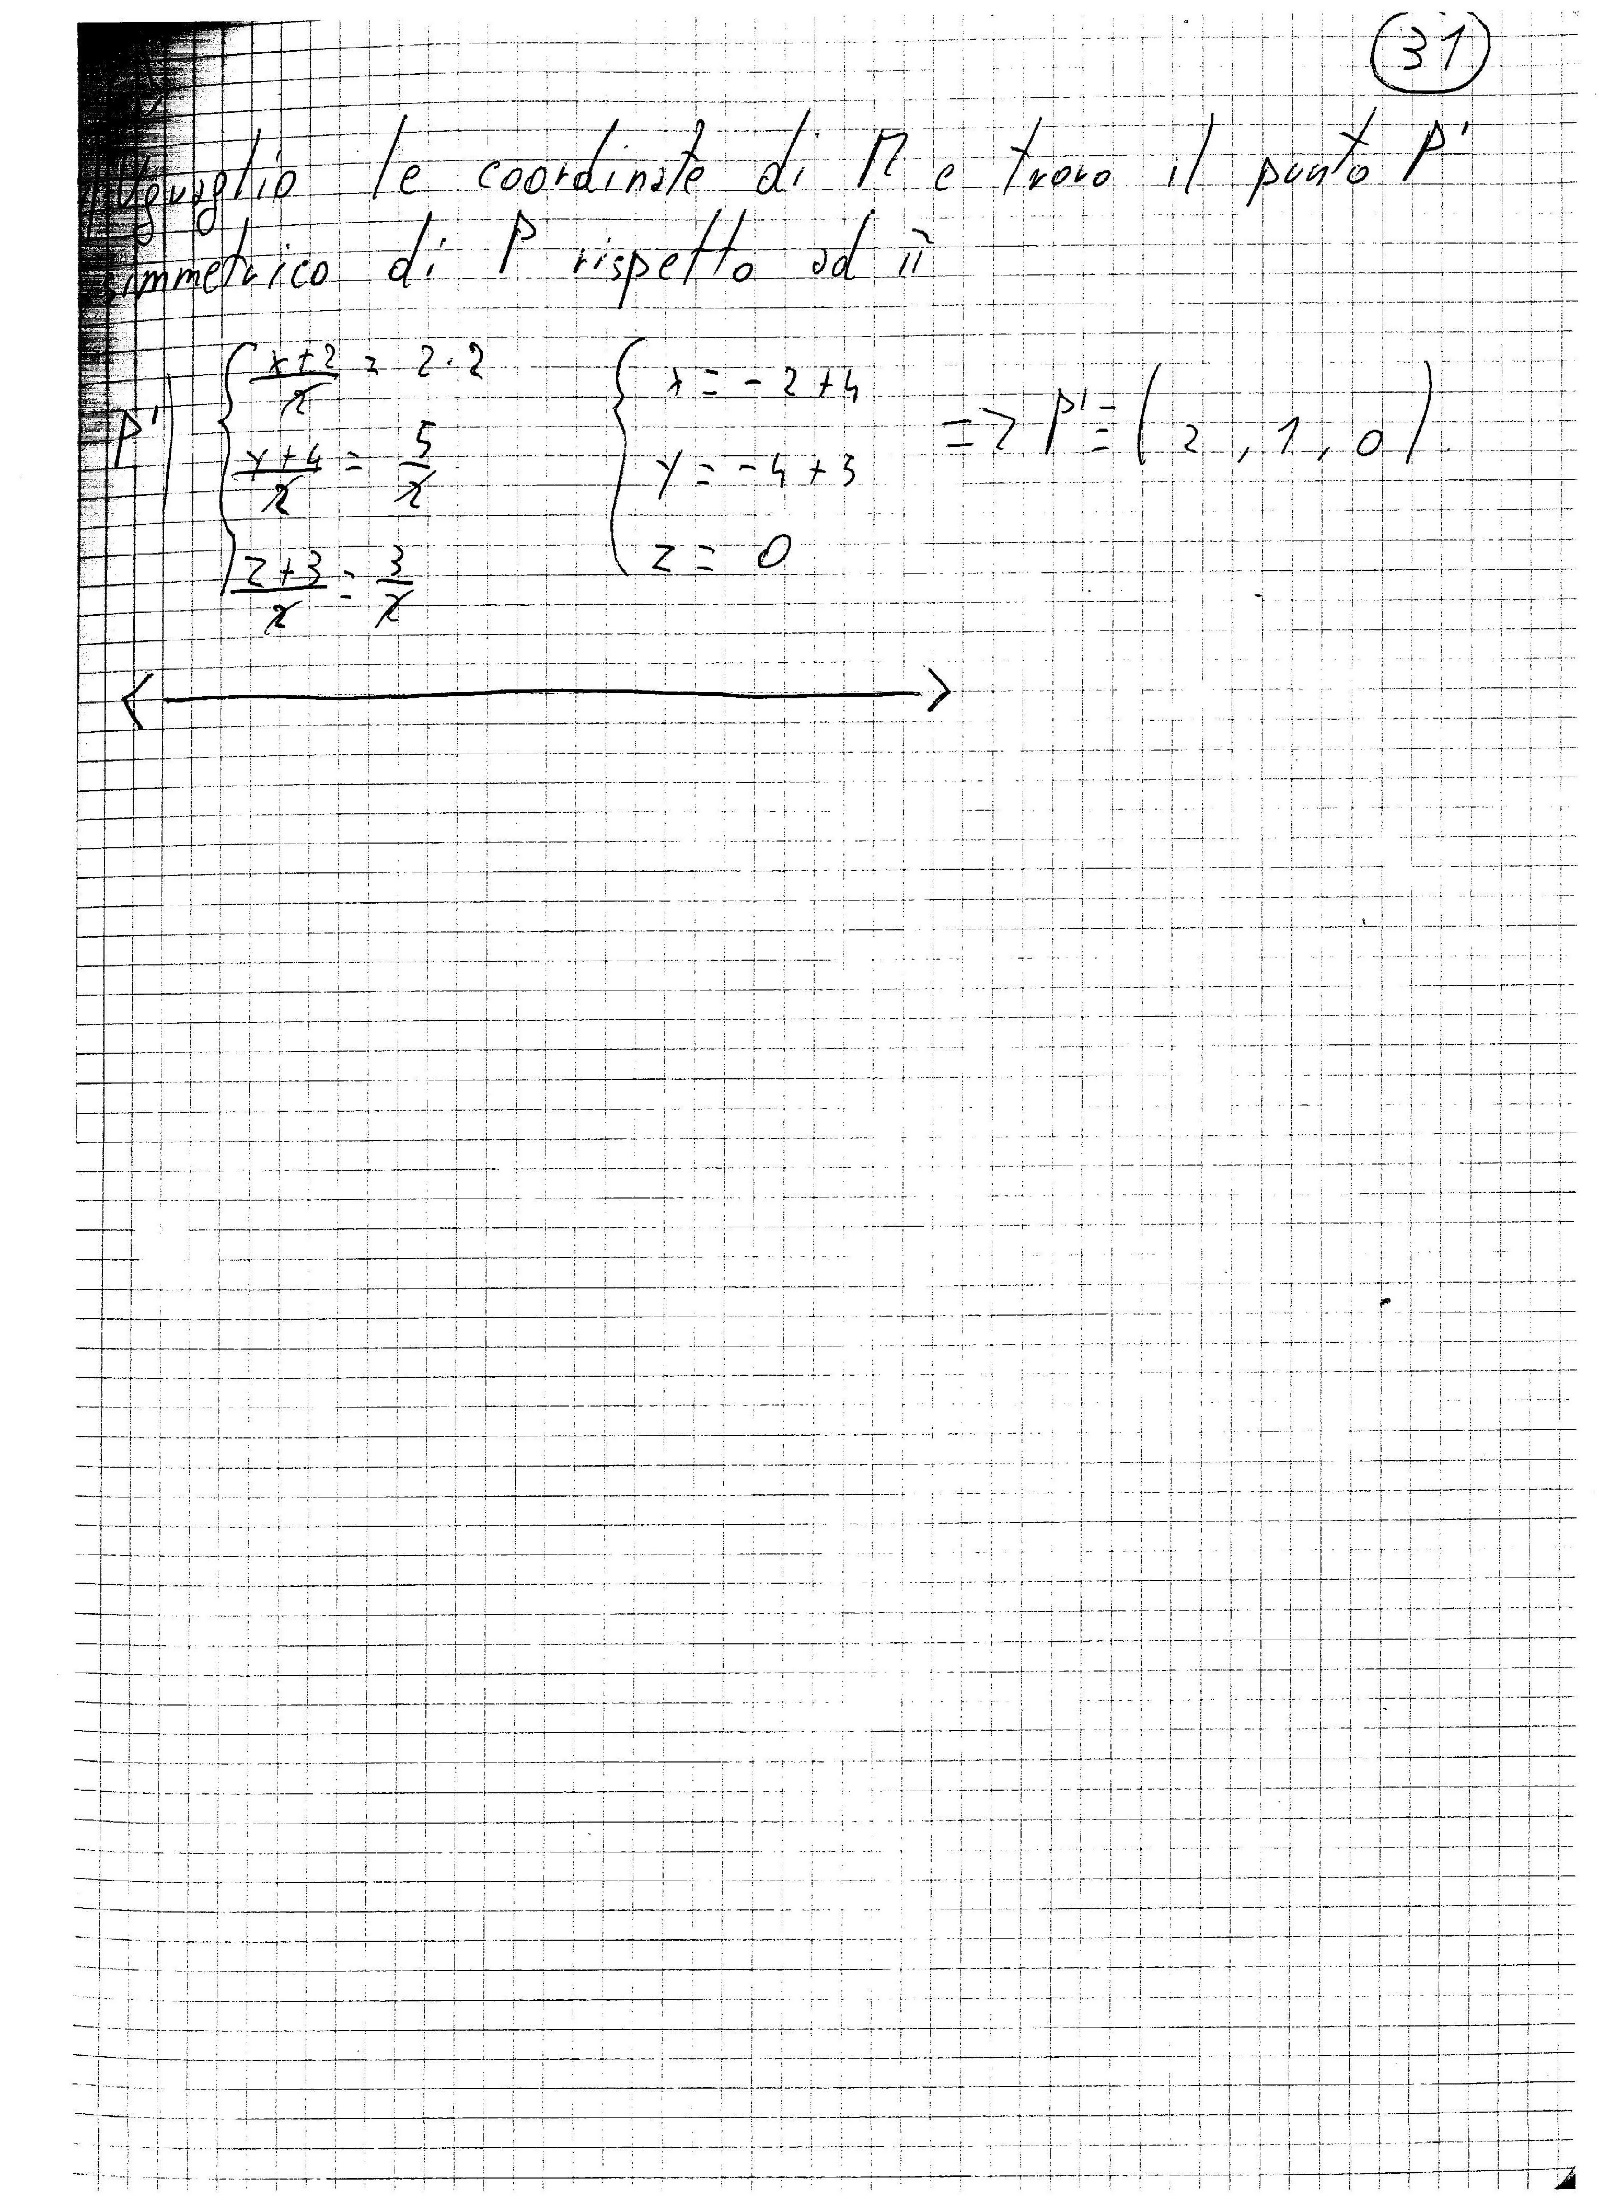 31
Uguaglio le coordinate di M e trovo il punto P'
simmetrico di P rispetto ad π
P') { (x+2)/2 = 2·2 { x = -2+4 => P' ≡ (2, 1, 0).
(y+4)/2 = 5/2 y = -4+5
(z+3)/2 = 3/2 z = 0